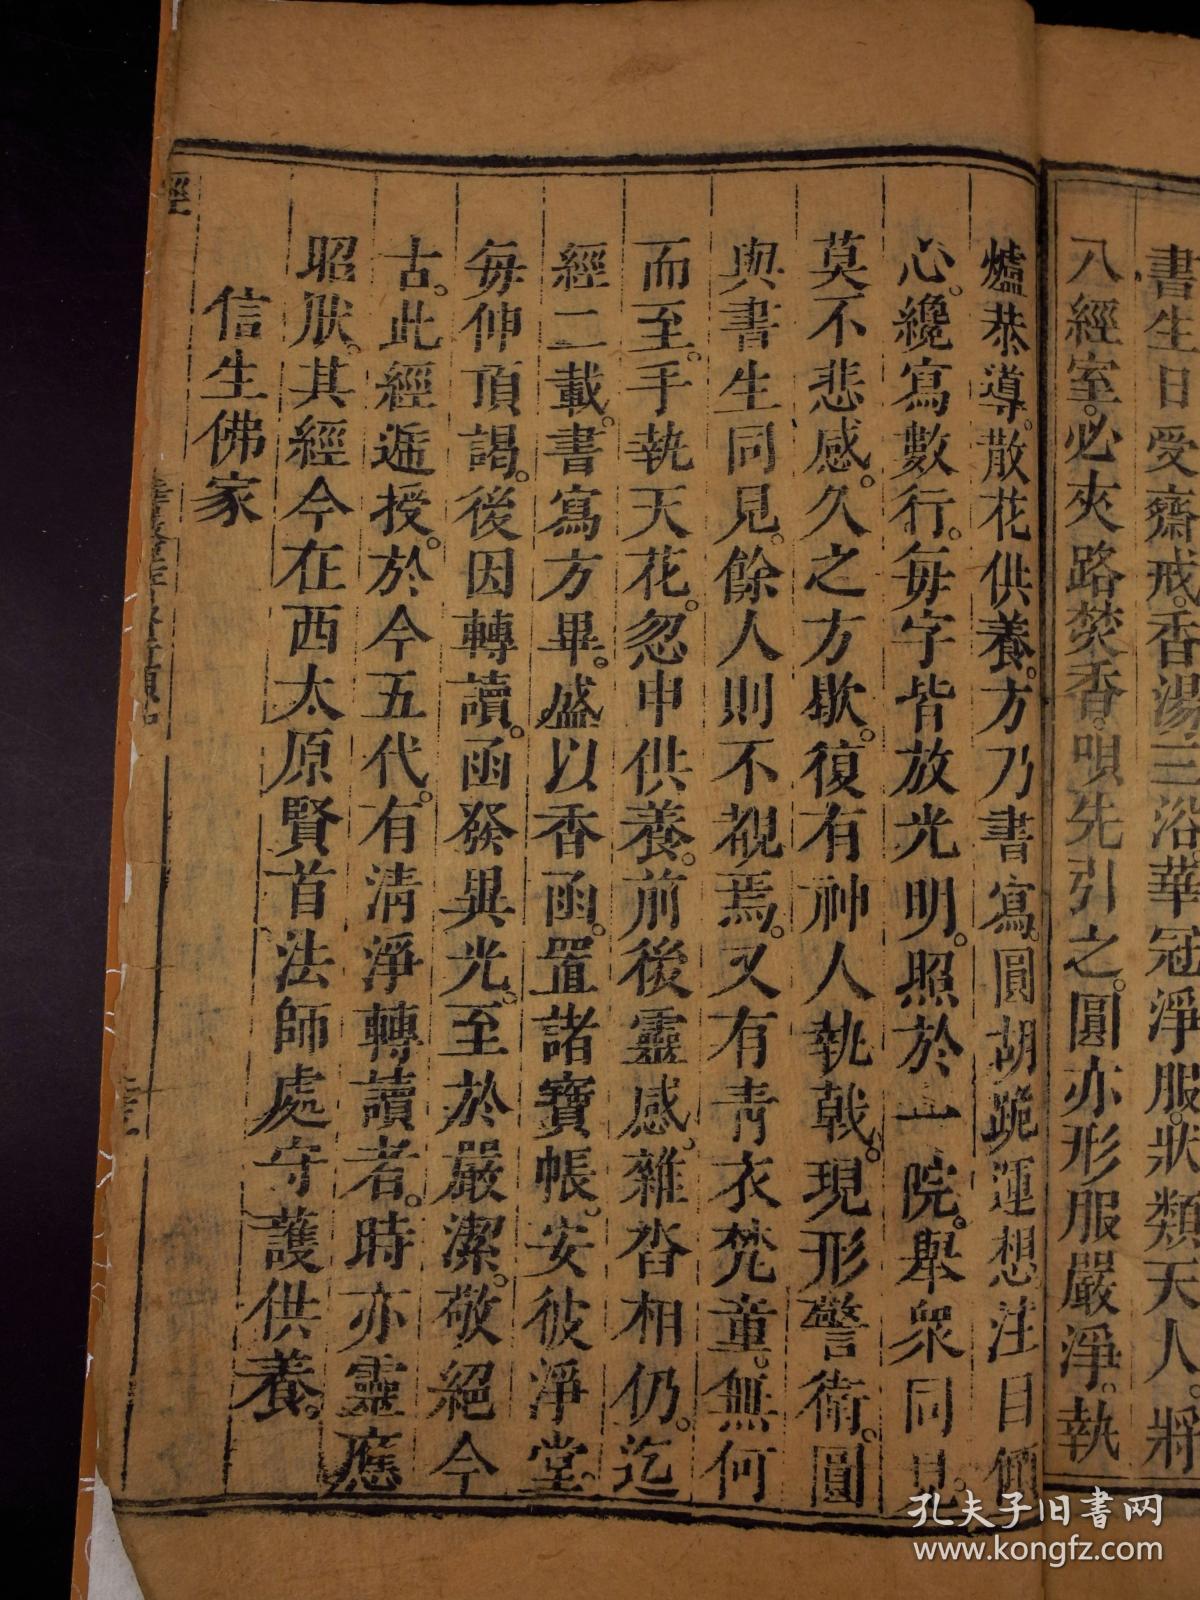 書生日受齋戒。香湯三浴。華冠淨服。狀類天人。將
入經室。必夾路焚香。唄先引之。圓亦形服嚴淨。執
爐恭導。散花供養。方乃書寫。圓胡跪運想注目傾
心。纔寫數行。每字皆放光明。照於一院。舉衆同見。
莫不悲感。久之方歇。復有神人執戟。現形警衛。圓
與書生同見。餘人則不覩焉。又有青衣梵童。無何
而至。手執天花。忽申供養。前後靈感。雜沓相仍。迄
經二載。書寫方畢。盛以香函。置諸寶帳。安彼淨堂。
每伸頂謁。後因轉讀。函發異光。至於嚴潔。敬絕今
古。此經遞授。於今五代。有清淨轉讀者。時亦靈應
昭然。其經今在西太原賢首法師處守護供養。
信生佛家
經
孔夫子旧書网
www.kongfz.com